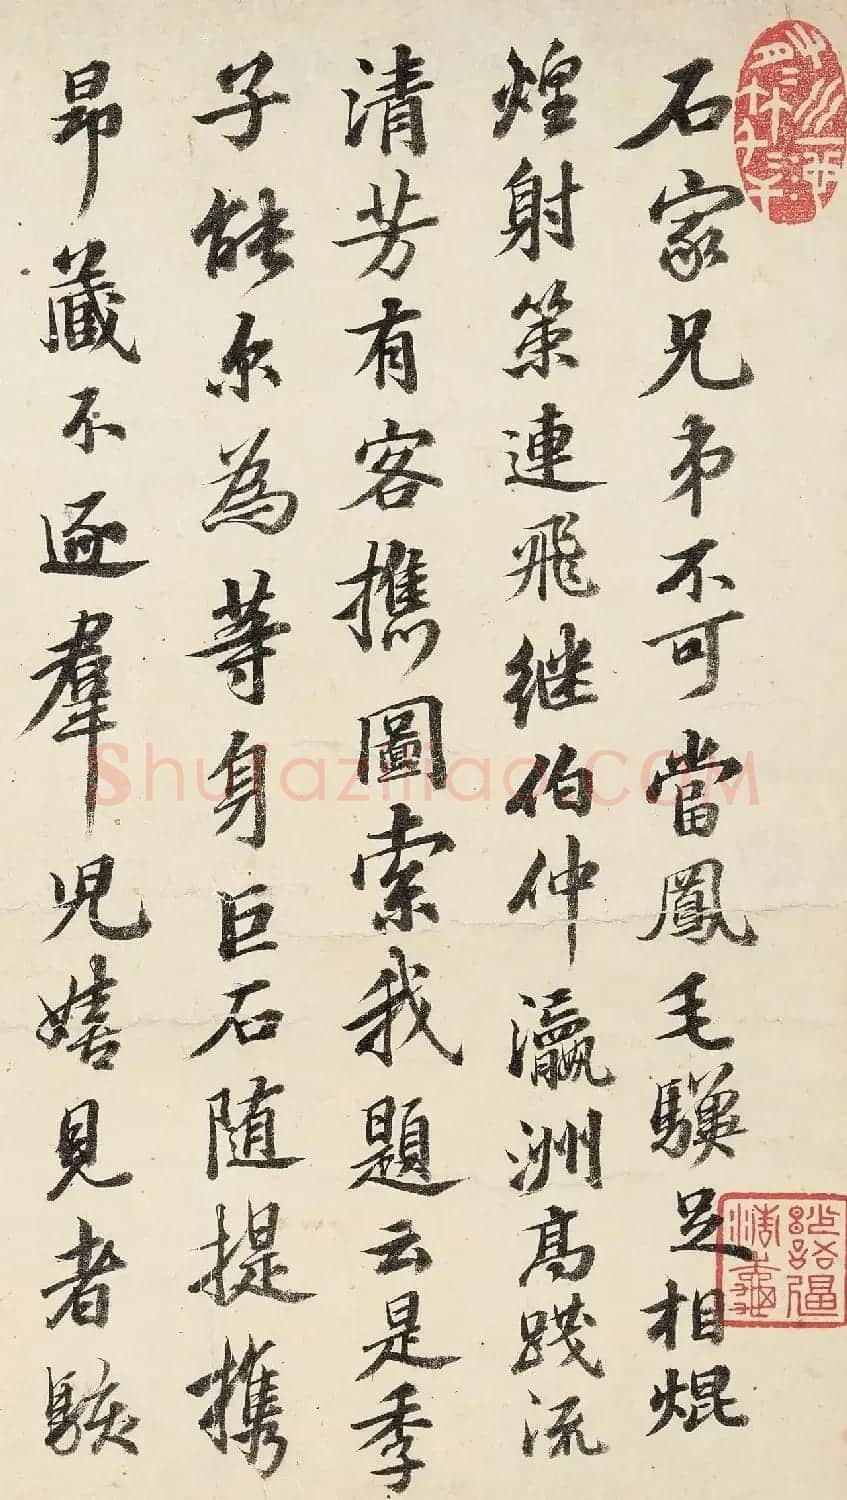 石家兄弟不可當鳳毛驥足相焜
煌射策連飛继伯仲瀛洲高踐流
清芳有客擕圖索我題云是季
子能尔為等身巨石随提携
昂藏不逐羣児嬉見者駭
Shufaziliao.COM